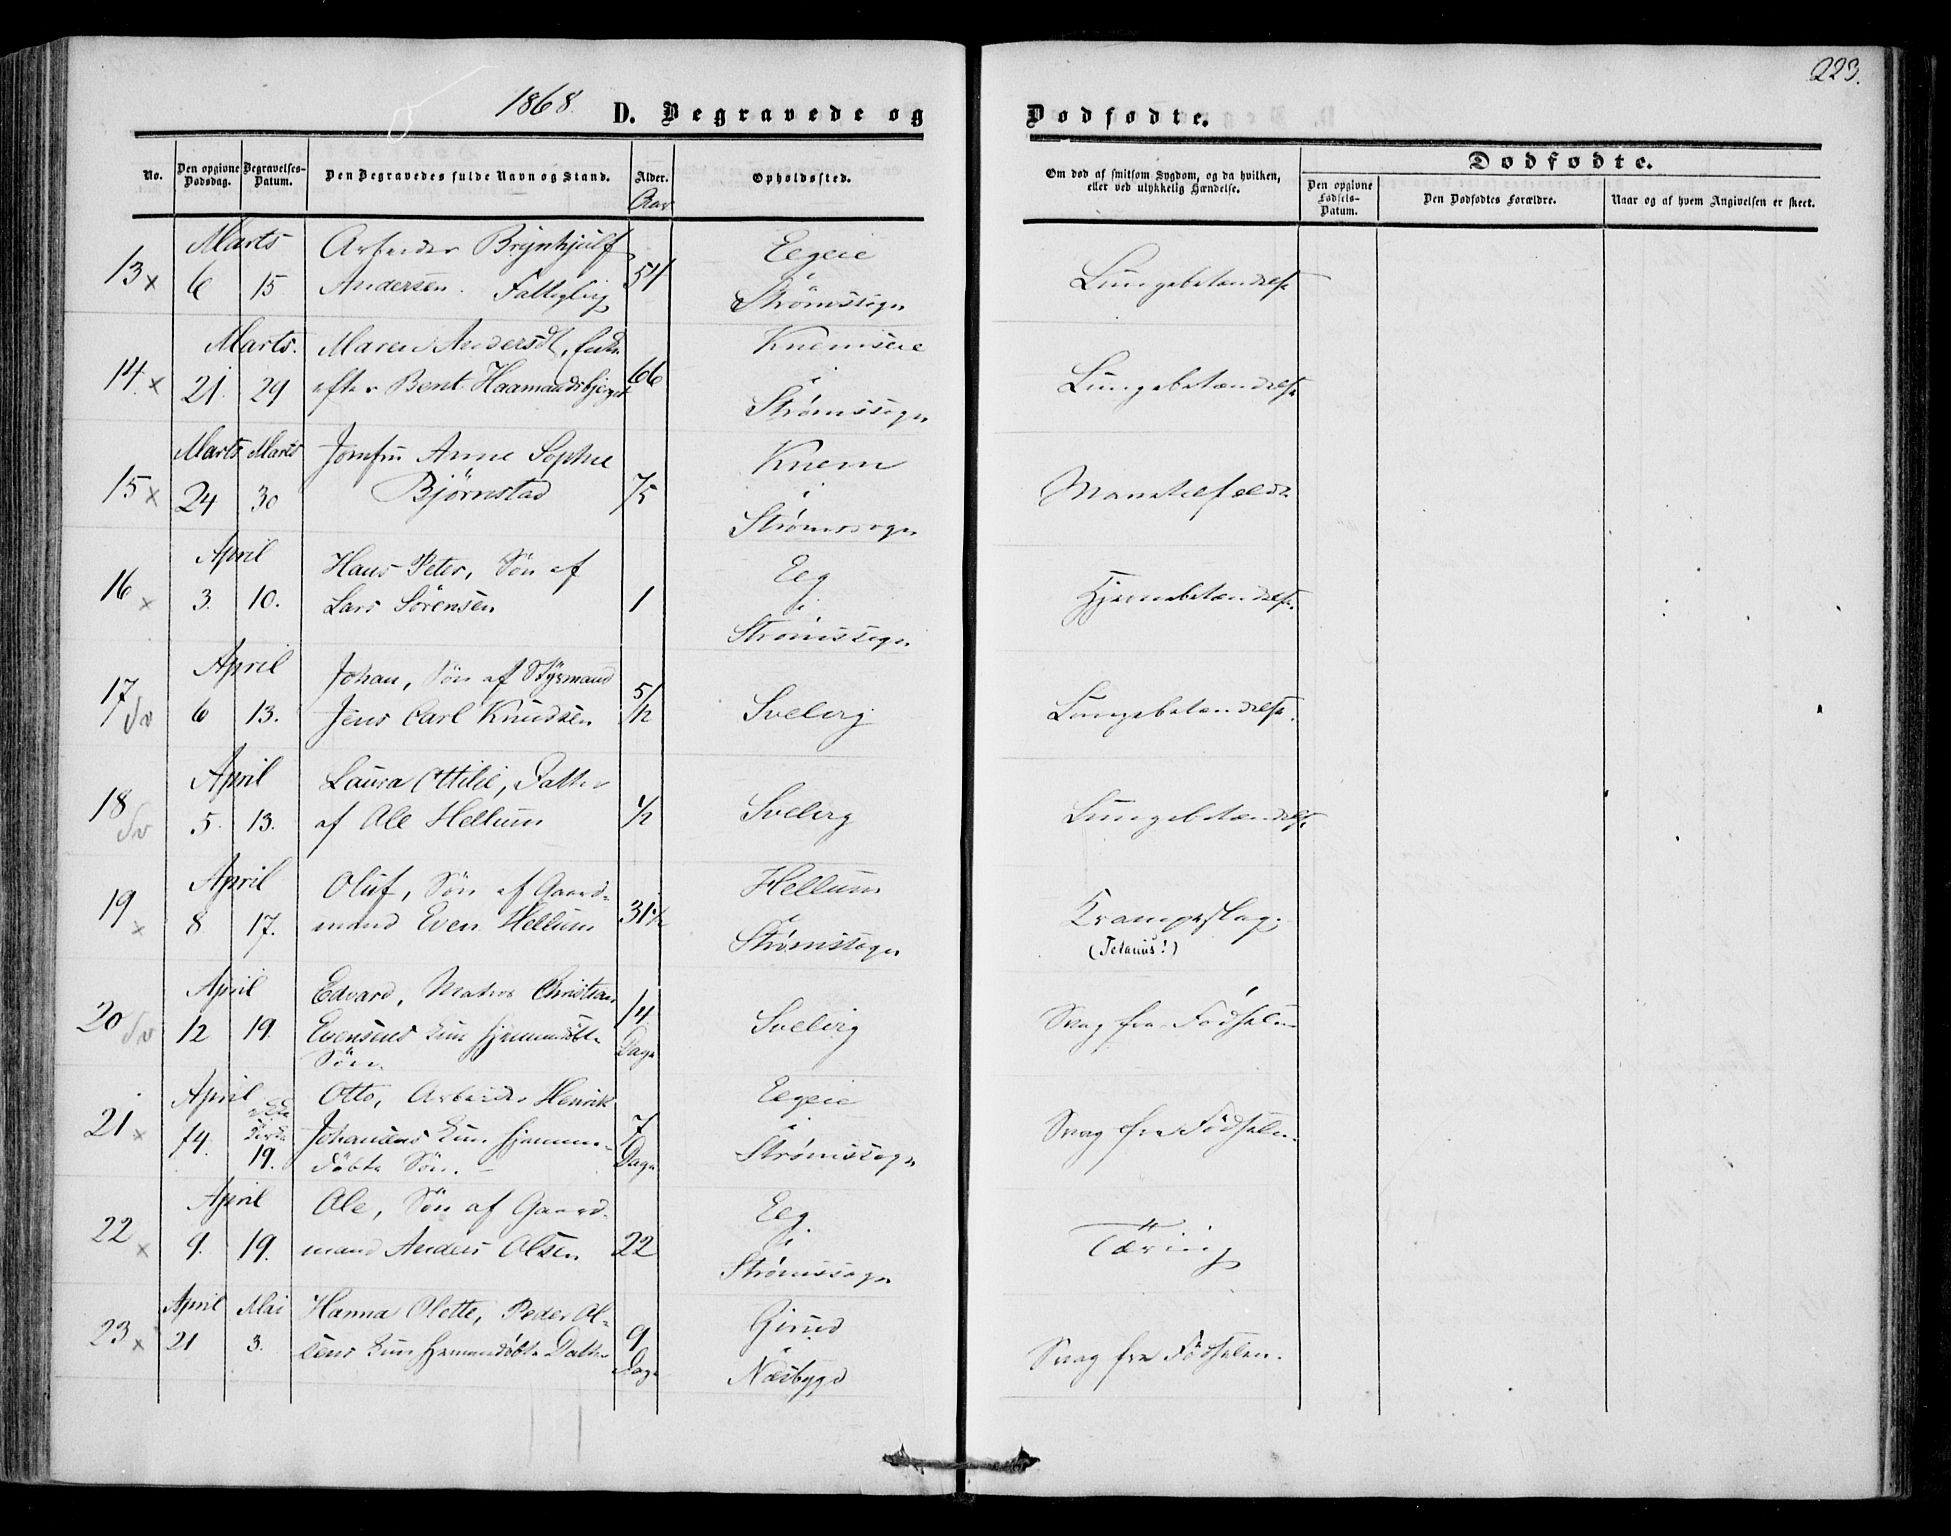 223.
1868. D. Begravede og Dødfødte.
No. Den opgivne Dødsdag. Begravelses-Datum. Den Begravedes fulde Navn og Stand. Alder. Opholdssted.
Aar
Om død af smitsom Sygdom, og da hvilken, eller ved ulykkelig Hændelse.
Dødfødte.
Den opgivne Fødsels-Datum. Den Dødfødtes Forældre. Naar og af hvem Angivelsen er skeet.
Marts Arbeider Brynhjulf Eegeie
13 x 6 15 Andersen. Fattiglig 54 i Strømssogn Lungebetændelse
Marts. Maren Andersdt, Enke Knemseie
14. x 21. 29 efter Bent Haamandsbjerget 66 i Strømssogn Lungebetændelse
Marts Marts Jomfru Anne Sophie Knem
15 x 24 30 Bjørnstad 75 i Strømssogn
April Hans Peter, Søn af Eeg
16 x 3. 10. Lars Sörensen 1 i Strømssogn Hjernebetændelse.
April Johan, Søn af Styrmand
17 Sv 6 13. Jens Carl Knudsen 5/12 Svelvig Lungebetændelse.
April Laura Ottilie, Datter
18 Sv 5. 13. af Ole Hellum 1/2 Svelvig Lungebetændelse
April Oluf, Søn af Gaard- Hellum
19 x 8 17. mand Even Hellum 31 1/2 i Strømssogn Krampeslag.
(Tetanus!)
April Edvard, Matros Christian
20 Sv 12 19. Evensens kun hjemmedöbte 14 Dage Svelvig Svag fra Fødselen
Søn.
April Otto, Arbeider Henrik Eegeie
21 x 14. 19. Johansens kun hjemme- 7 Dage i Strømssogn Svag fra Fødselen.
döbte Søn. –
April Ole, Søn af Gaard- Eeg
22 x 9. 19. mand Anders Olsen 22 i Strømssogn Tæring
April Mai Hanna Olette, Peder Ol- Girud
23 x 21 3. sens kun hjemmedöbte Datter 9 Dage i Næsbygd Svag fra Fødselen.